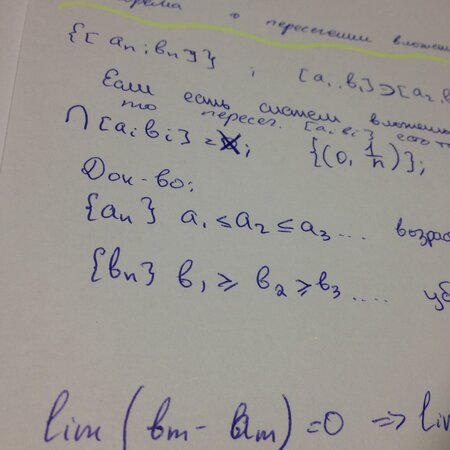 теорема о пересечении вложен
{[aₙ; bₙ]} ; [a₁, b₁] ⊃ [a₂, b
Если есть систем вложенн
то пересеч. [aᵢ bᵢ] есть т
∩ [aᵢ bᵢ] = x; {(0, 1/n)};
Док-во:
{aₙ} a₁ ≤ a₂ ≤ a₃ ... возрас
{bₙ} b₁ ≥ b₂ ≥ b₃ .... уб
lim (bₘ - aₘ) = 0 => li